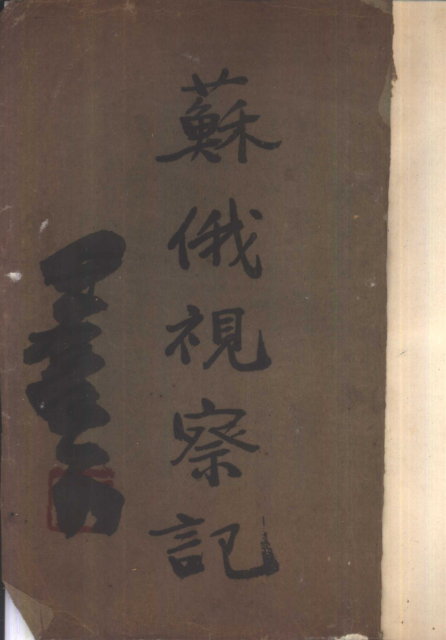 蘇俄視察記